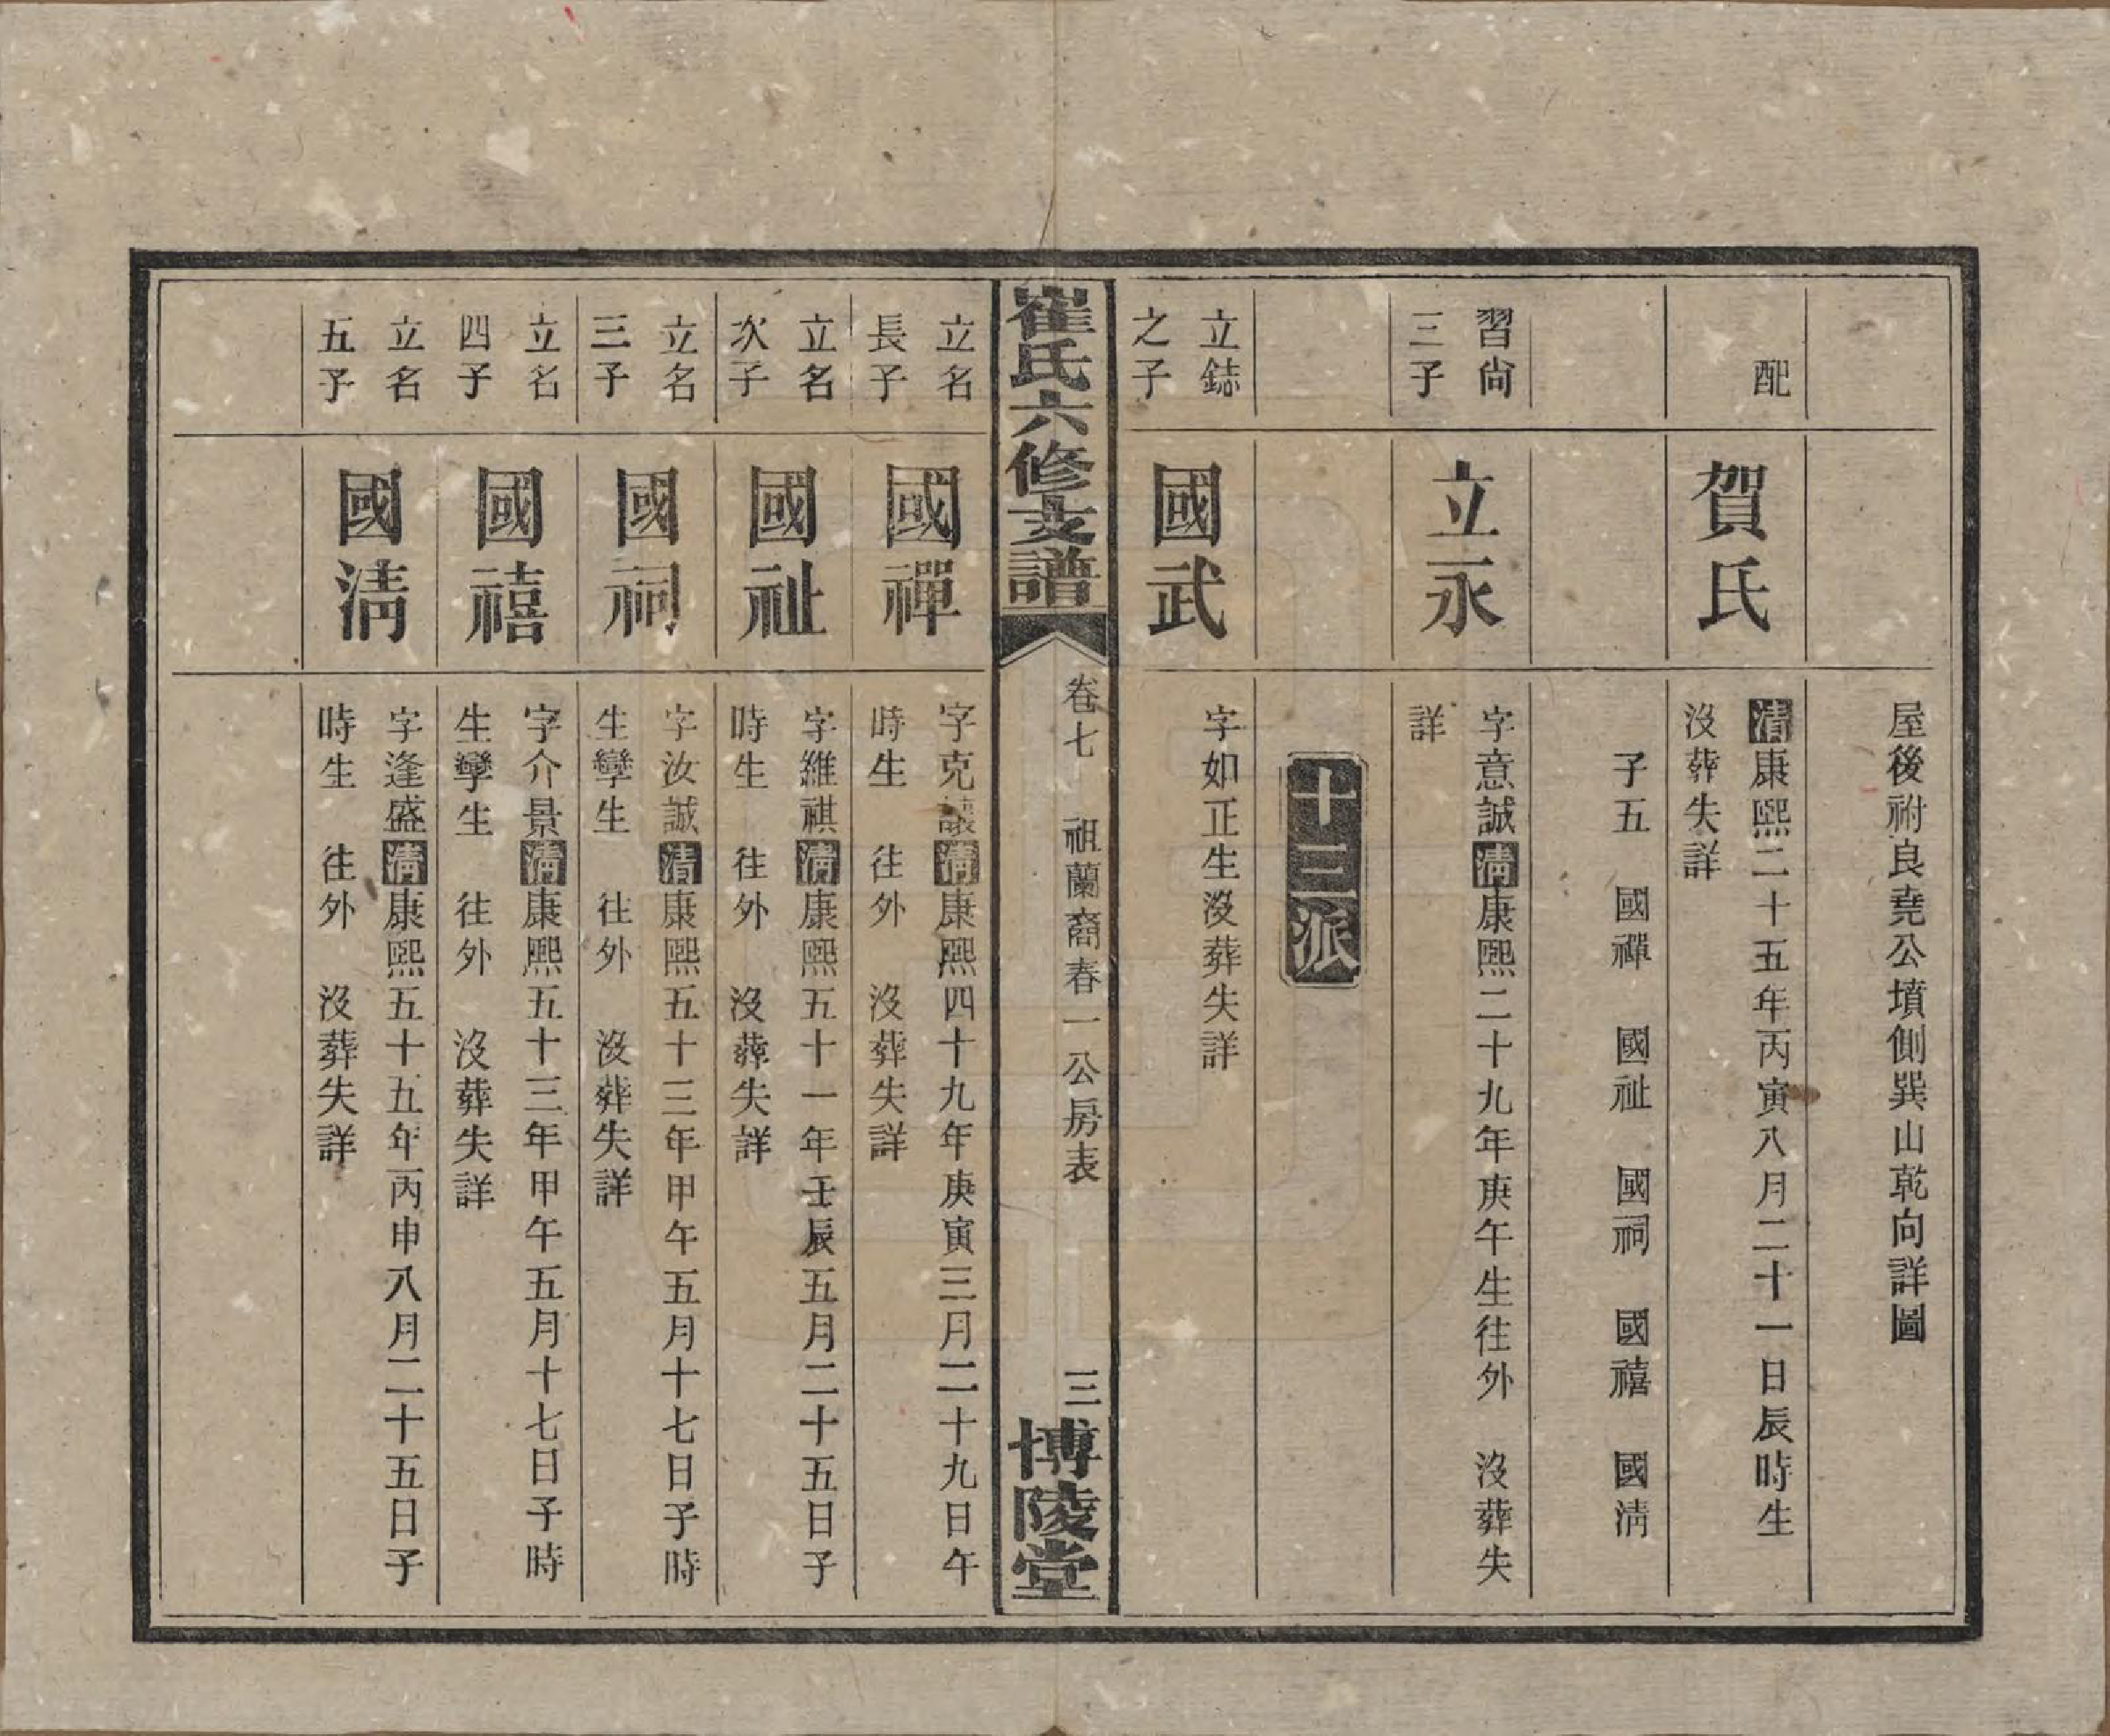 屋後祔良堯公墳側巽山乾向詳圖
配
賀氏
清康熙二十五年丙寅八月二十一日辰時生
沒葬失詳
子五　國禪　國祉　國祠　國禧　國清
習尙
三子
立永
字意誠清康熙二十九年庚午生往外　沒葬失
詳
十三派
立鋕
之子
國武
字如正生沒葬失詳
崔氏六修支譜
卷七　祖蘭裔春一公房表
三
博陵堂
立名
長子
國禪
字克讓清康熙四十九年庚寅三月二十九日午
時生　往外　沒葬失詳
立名
次子
國祉
字維祺清康熙五十一年壬辰五月二十五日子
時生　往外　沒葬失詳
立名
三子
國祠
字汝誠清康熙五十三年甲午五月十七日子時
生孿生　往外　沒葬失詳
立名
四子
國禧
字介景清康熙五十三年甲午五月十七日子時
生孿生　往外　沒葬失詳
立名
五子
國清
字逢盛清康熙五十五年丙申八月二十五日子
時生　往外　沒葬失詳